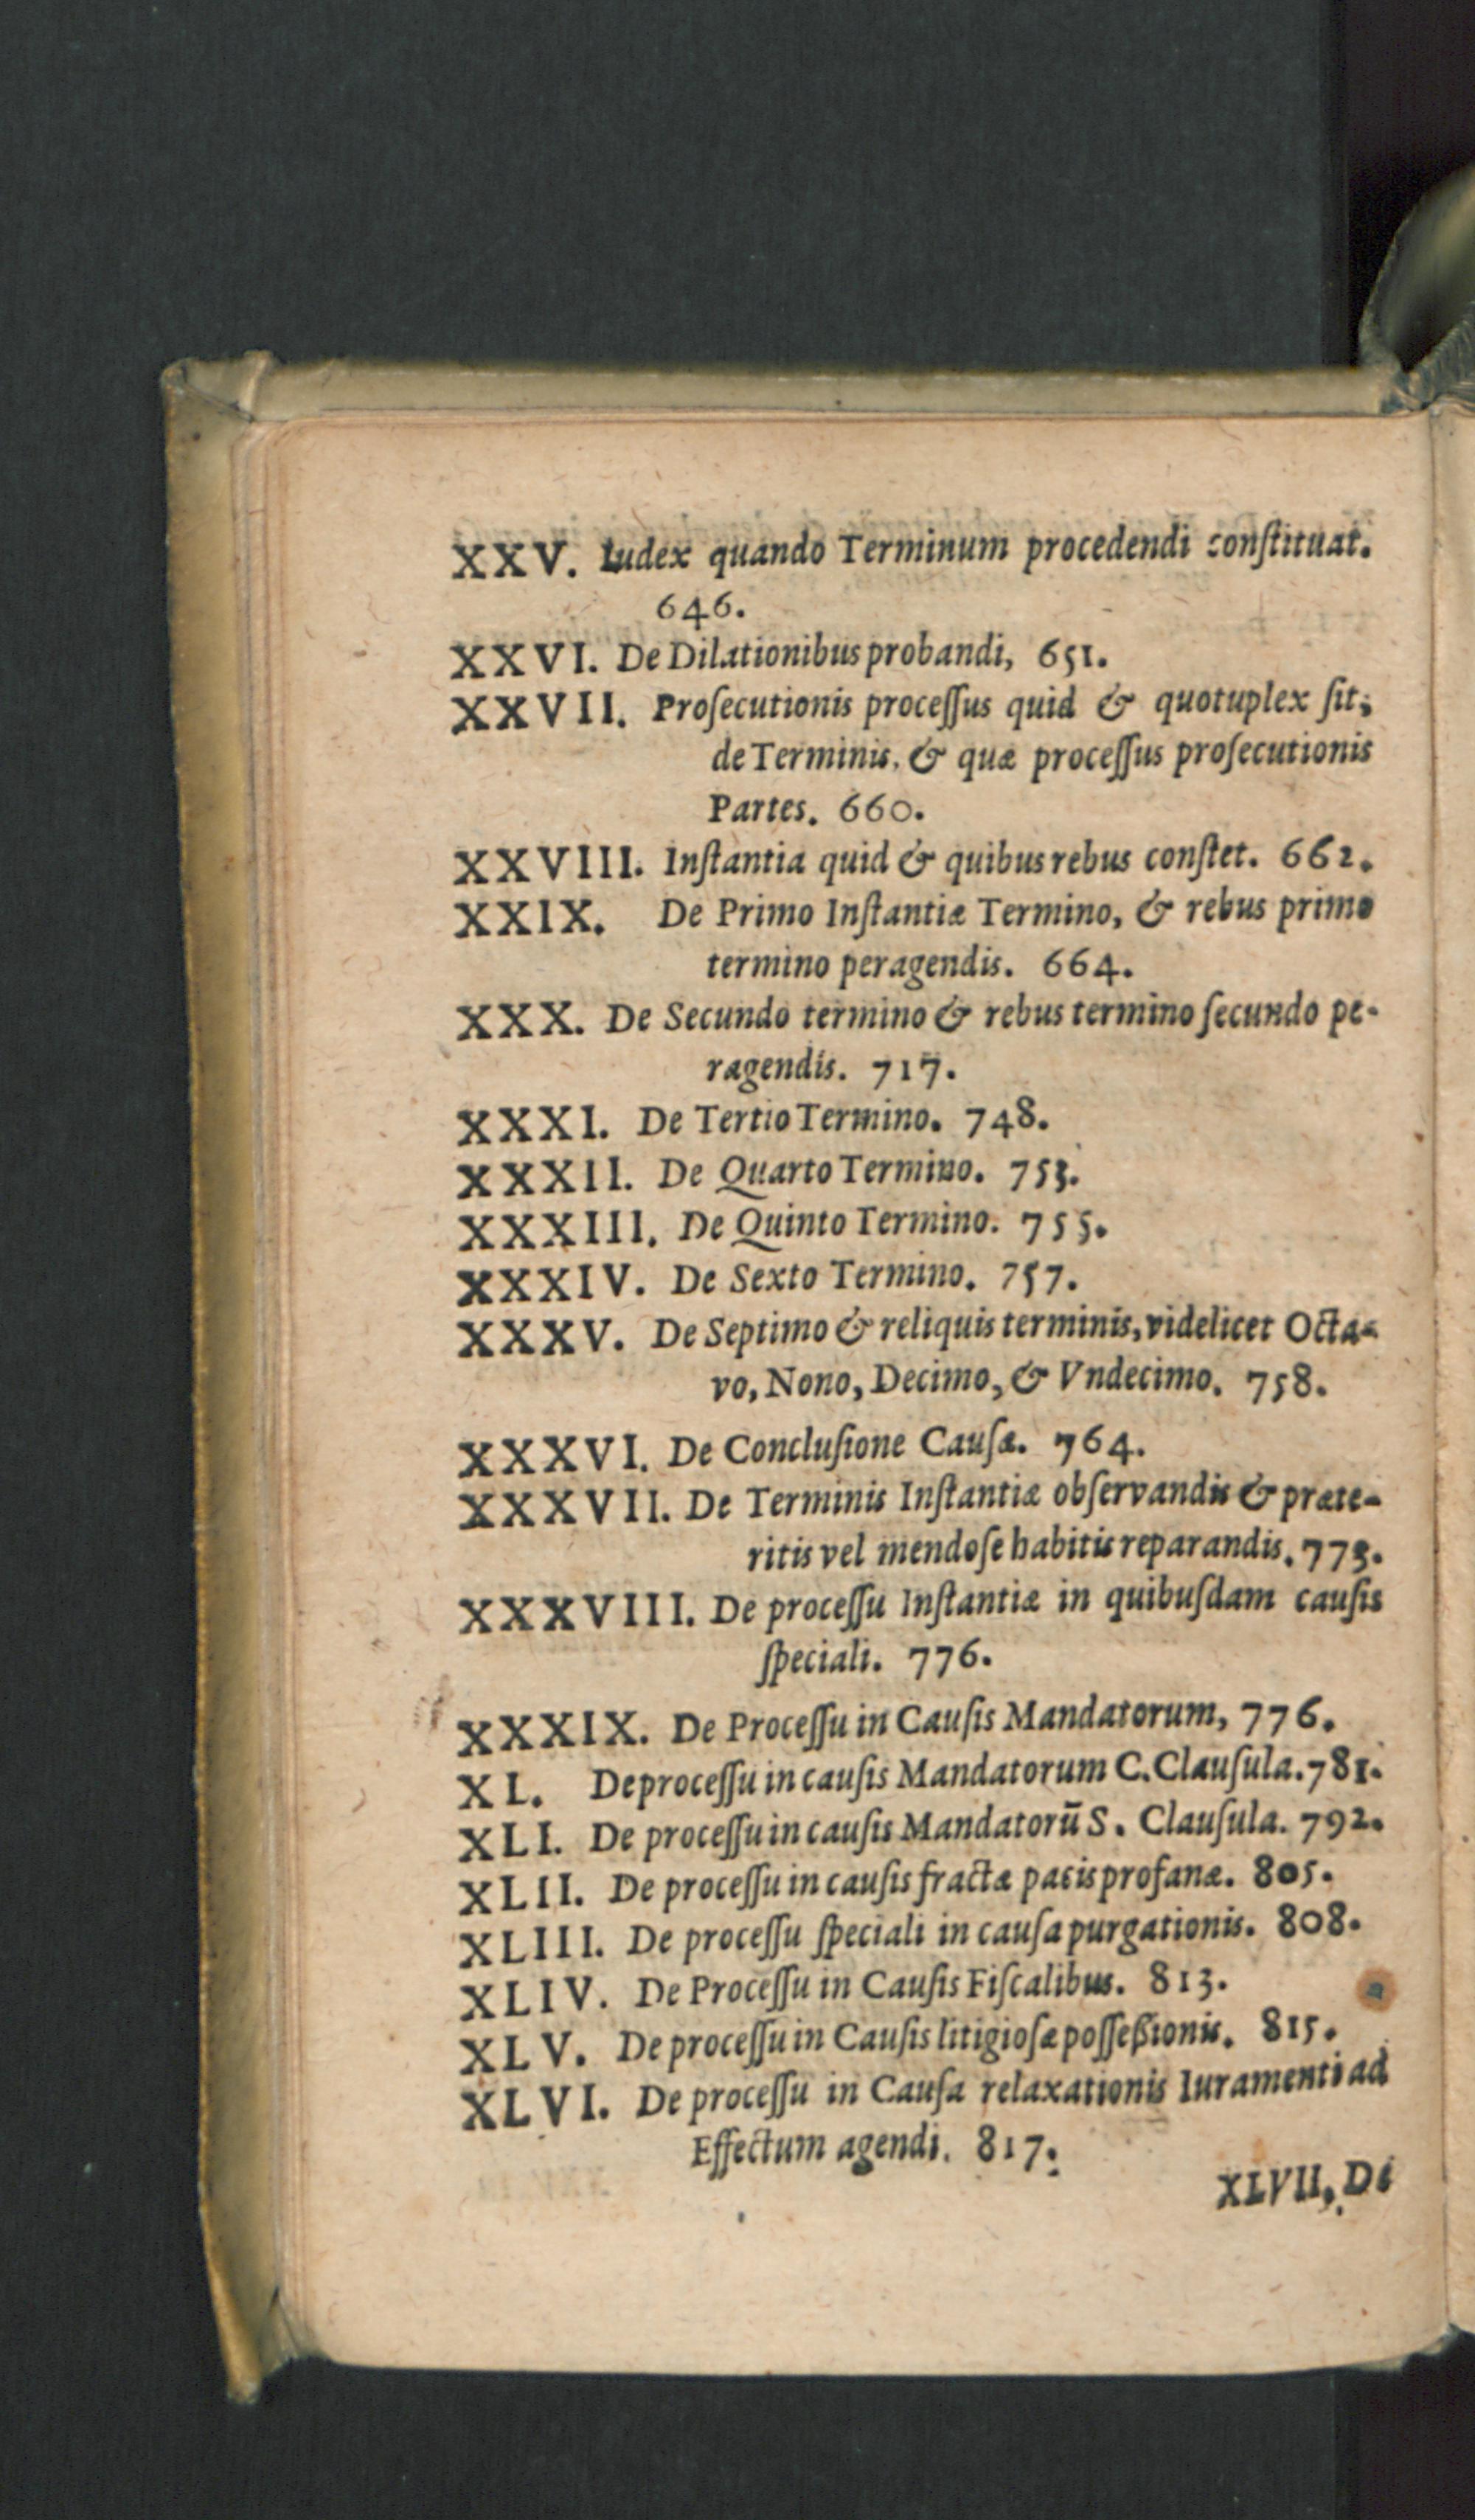 XXV. Iudex quando Terminum procedendi conſtituat.
646.
XXVI. De Dilationibus probandi, 651.
XXVII. Proſecutionis proceſſus quid & quotuplex ſit;
de Terminis, & quæ proceſſus proſecutionis
Partes. 660.
XXVIII. Inſtantia quid & quibus rebus conſtet. 662.
XXIX. De Primo Inſtantiæ Termino, & rebus primo
termino peragendis. 664.
XXX. De Secundo termino & rebus termino ſecundo pe-
ragendis. 717.
XXXI. De Tertio Termino. 748.
XXXII. De Quarto Termino. 753.
XXXIII. De Quinto Termino. 755.
XXXIV. De Sexto Termino. 757.
XXXV. De Septimo & reliquis terminis, videlicet Octa-
vo, Nono, Decimo, & Vndecimo. 758.
XXXVI. De Concluſione Cauſæ. 764.
XXXVII. De Terminis Inſtantiæ obſervandis & præte-
ritis vel mendoſe habitis reparandis. 773.
XXXVIII. De proceſſu Inſtantiæ in quibuſdam cauſis
ſpeciali. 776.
XXXIX. De Proceſſu in Cauſis Mandatorum, 776.
XL. De proceſſu in cauſis Mandatorum C. Clauſula. 781.
XLI. De proceſſu in cauſis Mandatorū S. Clauſula. 792.
XLII. De proceſſu in cauſis fractæ pacis profanæ. 805.
XLIII. De proceſſu ſpeciali in cauſa purgationis. 808.
XLIV. De Proceſſu in Cauſis Fiſcalibus. 813.
XLV. De proceſſu in Cauſis litigioſæ poſſeßionis. 815.
XLVI. De proceſſu in Cauſa relaxationis Iuramenti ad
Effectum agendi. 817.
XLVII. De